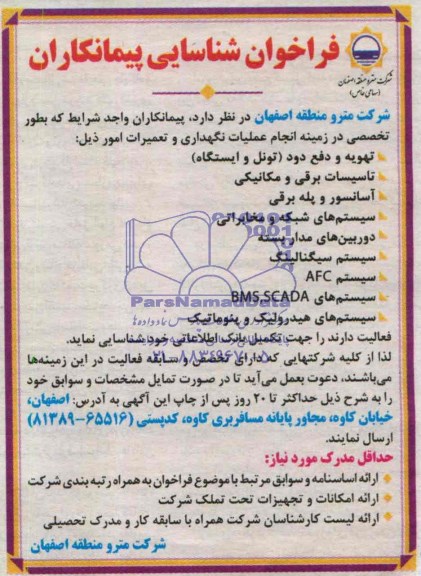 فراخوان شناسایی پیمانکاران
شرکت مترو منطقه اصفهان
(سهامی خاص)
شرکت مترو منطقه اصفهان در نظر دارد، پیمانکاران واجد شرایط که بطور
تخصصی در زمینه انجام عملیات نگهداری و تعمیرات امور ذیل:
تهویه و دفع دود (تونل و ایستگاه)
تاسیسات برقی و مکانیکی
آسانسور و پله برقی
سیستم‌های شبکه و مخابراتی
دوربین‌های مدار بسته
سیستم سیگنالینگ
سیستم AFC
سیستم‌های BMS,SCADA
سیستم‌های هیدرولیک و پنوماتیک
ParsNamadData
فعالیت دارند را جهت تکمیل بانک اطلاعاتی خود شناسایی نماید.
لذا از کلیه شرکتهایی که دارای تخصص و سابقه فعالیت در این زمینه‌ها
می‌باشند، دعوت بعمل می‌آید تا در صورت تمایل مشخصات و سوابق خود
را به شرح ذیل حداکثر تا ۲۰ روز پس از چاپ این آگهی به آدرس: اصفهان،
خیابان کاوه، مجاور پایانه مسافربری کاوه، کدپستی (۶۵۵۱۶-۸۱۳۸۹)
ارسال نمایند.
حداقل مدرک مورد نیاز:
ارائه اساسنامه و سوابق مرتبط با موضوع فراخوان به همراه رتبه بندی شرکت
ارائه امکانات و تجهیزات تحت تملک شرکت
ارائه لیست کارشناسان شرکت همراه با سابقه کار و مدرک تحصیلی
شرکت مترو منطقه اصفهان